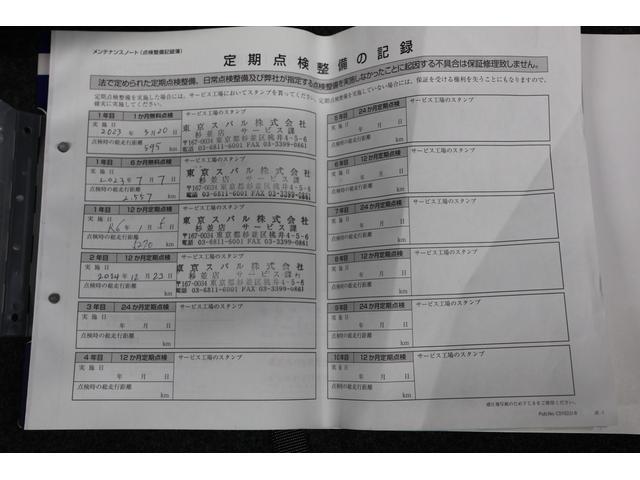 メンテナンスノート(点検整備記録簿)
定期点検整備の記録
法で定められた定期点検整備、日常点検整備及び弊社が指定する点検整備を実施しなかったことに起因する不具合は保証修理致しません。
定期点検整備を実施した場合には、サービス工場においてスタンプを貰ってください。定期点検整備を実施していない場合には、保証を受ける権利を失うことにもなりますので、
確実に実施してください。
1年目 1か月無料点検
実施日
2023年 5月20日
点検時の総走行距離
595 km
東京スバル株式会社
杉並店 サービス課
〒167-0034 東京都杉並区桃井4-5-6
電話 03-6811-6001 FAX 03-3399-0861
1年目 6か月無料点検
実施日
2023年 7月 7日
点検時の総走行距離
2,557 km
東京スバル株式会社
杉並店 サービス課
〒167-0034 東京都杉並区桃井4-5-6
電話 03-6811-6001 FAX 03-3399-0861
1年目 12か月定期点検
実施日
R6年 1月 5日
点検時の総走行距離
5270 km
東京スバル株式会社
杉並店 サービス課
〒167-0034 東京都杉並区桃井4-5-6
電話 03-6811-6001 FAX 03-3399-0861
2年目 12か月定期点検
実施日
2024年 12月 23日
点検時の総走行距離
km
東京スバル株式会社
杉並店 サービス課
〒167-0034 東京都杉並区桃井4-5-6
電話 03-6811-6001 FAX 03-3399-0861
3年目 24か月定期点検
サービス工場のスタンプ
実施日
年 月 日
点検時の総走行距離
km
4年目 12か月定期点検
サービス工場のスタンプ
実施日
年 月 日
点検時の総走行距離
km
5年目 24か月定期点検
サービス工場のスタンプ
実施日
年 月 日
点検時の総走行距離
km
6年目 12か月定期点検
サービス工場のスタンプ
実施日
年 月 日
点検時の総走行距離
km
7年目 24か月定期点検
サービス工場のスタンプ
実施日
年 月 日
点検時の総走行距離
km
8年目 12か月定期点検
サービス工場のスタンプ
実施日
年 月 日
点検時の総走行距離
km
9年目 24か月定期点検
サービス工場のスタンプ
実施日
年 月 日
点検時の総走行距離
km
10年目 12か月定期点検
サービス工場のスタンプ
実施日
年 月 日
点検時の総走行距離
km